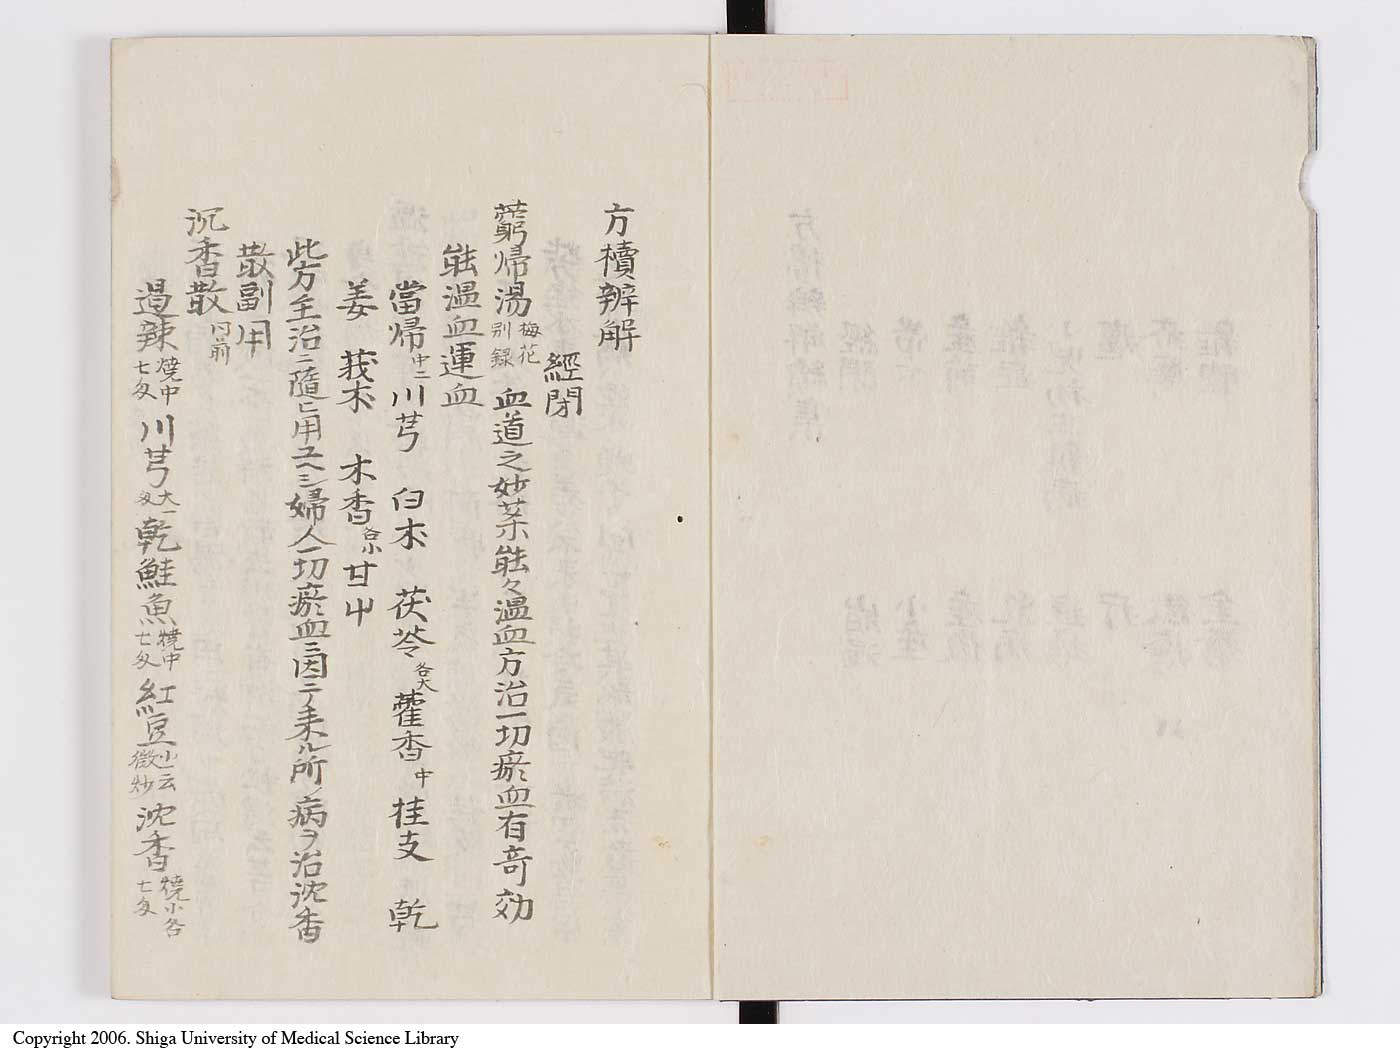 方櫝辨解
經閉
藭帰湯 梅花別録 血道之妙薬能々温血方治一切瘀血有竒効
能温血運血
當帰 中二 川芎 白朮 茯苓 各大 藿香 中 桂支 乾
姜 莪朮 木香 各小 甘屮
此方主治ニ隨ヒ用ユヘシ婦人一切瘀血ニ因テ来ル所ノ病ヲ治沈香
散副用
沉香散 同前
過辣 焼中七匁 川芎 大一匁 乾鮭魚 焼中七匁 紅豆 小一云微炒 沈香 焼小各七匁
Copyright 2006. Shiga University of Medical Science Library